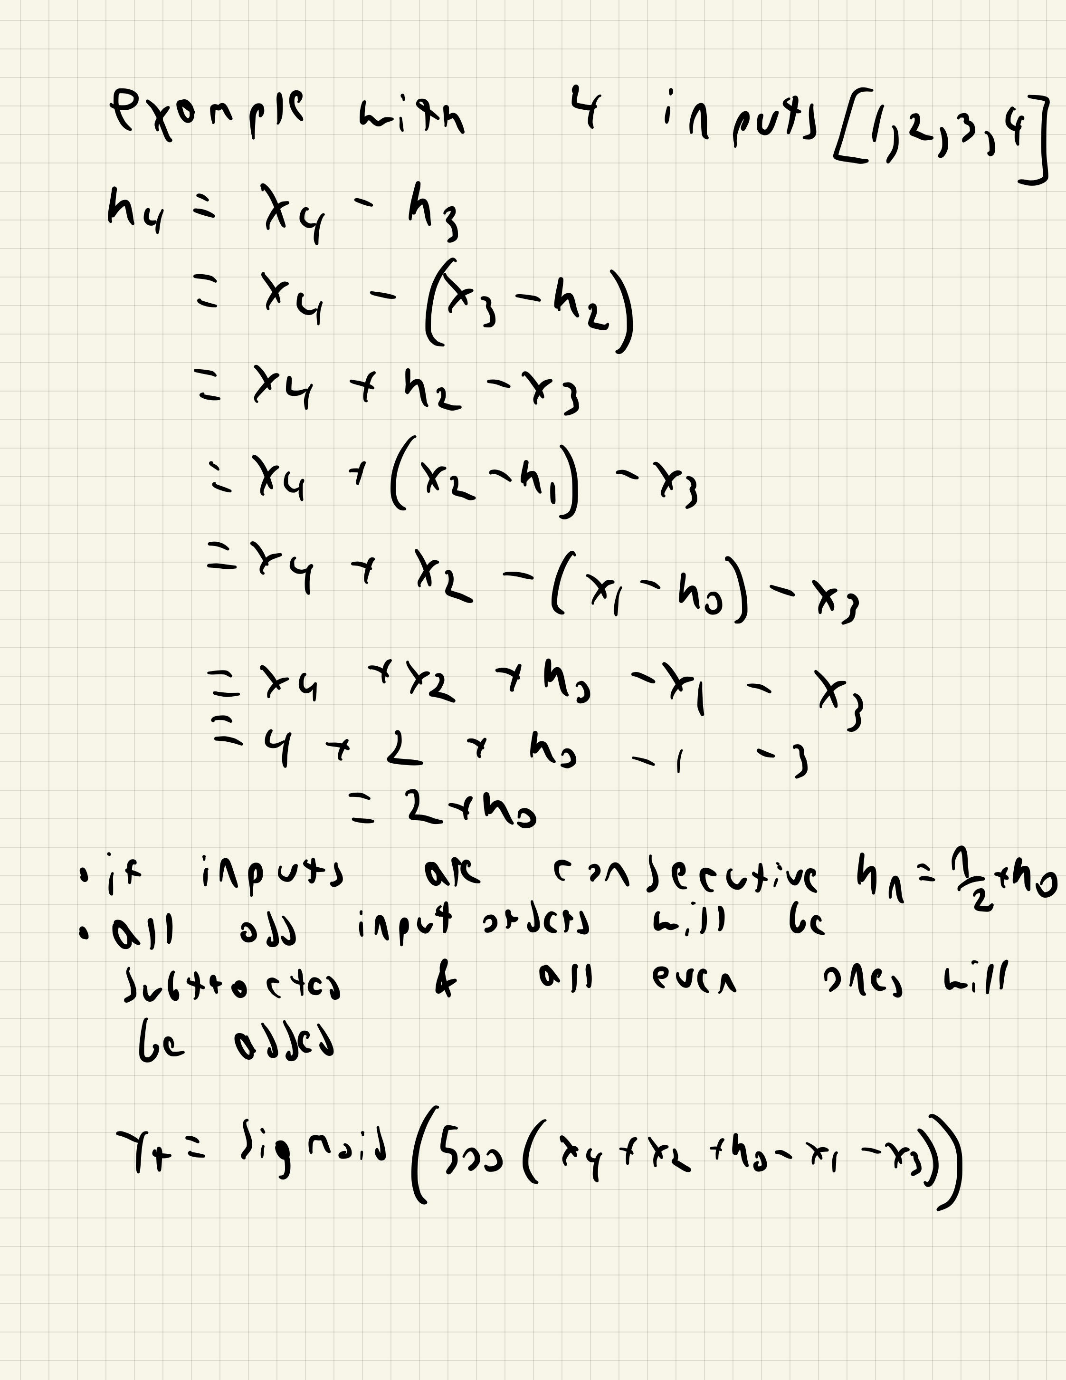 example with 4 inputs [1,2,3,4]
h₄ = x₄ - h₃
= x₄ - (x₃ - h₂)
= x₄ + h₂ - x₃
= x₄ + (x₂ - h₁) - x₃
= x₄ + x₂ - (x₁ - h₀) - x₃
= x₄ + x₂ + h₀ - x₁ - x₃
= 4 + 2 + h₀ - 1 - 3
= 2 + h₀
• if inputs are consecutive hₙ = n/2 + h₀
• all odd input orders will be
subtracted & all even ones will
be added
yₜ = sigmoid (500 (x₄ + x₂ + h₀ - x₁ - x₃))